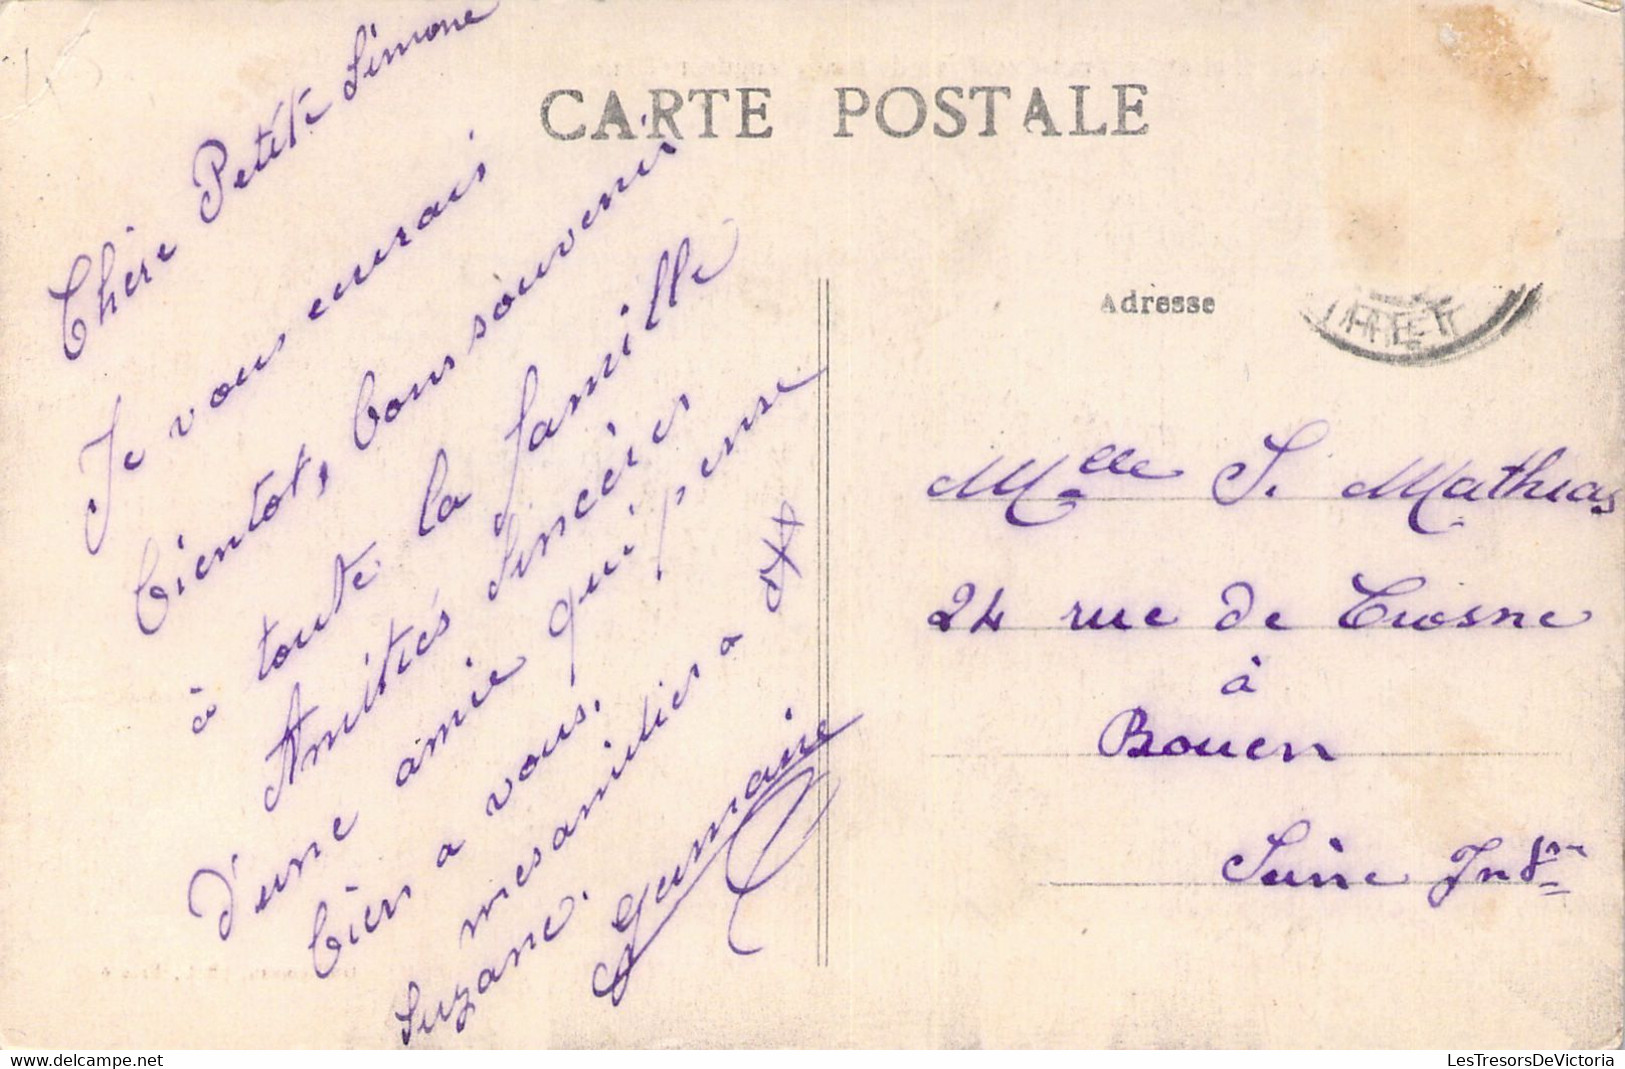 CARTE POSTALE
Chère Petite Simone
Je vous enverrais
bientot, bons souvenirs
à toute la famille
Amitiés Sincères
d'une amie qui pense
bien a vous.
mes amitiés a
Suzane. Germaine
Adresse
Melle S. Mathias
24 rue de Crosne
à
Rouen
Seine Infre
LesTresorsDeVictoria
www.delcampe.net